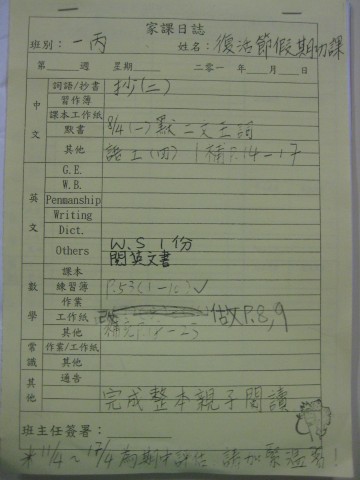 家課日誌
班別： 一丙 姓名： 復活節假期功課
第 週 星期 二零一 年 月 日
中文
詞語/抄書 抄(二)
習作簿
課本工作紙
默書 8/4(一)默二文五詞
其他 語工(四) 補P.14-17
英文
G.E.
W.B.
Penmanship
Writing
Dict.
Others W.S 1份
閱英文書
數學
課本
練習簿 P.53(1-10)✓
作業
工作紙 做X P.8,9
其他
常識
作業/工作紙
其他
其他
通告
完成整本親子閱讀
班主任簽署：
* 11/4~17/4 為期中評估 請加緊溫習！